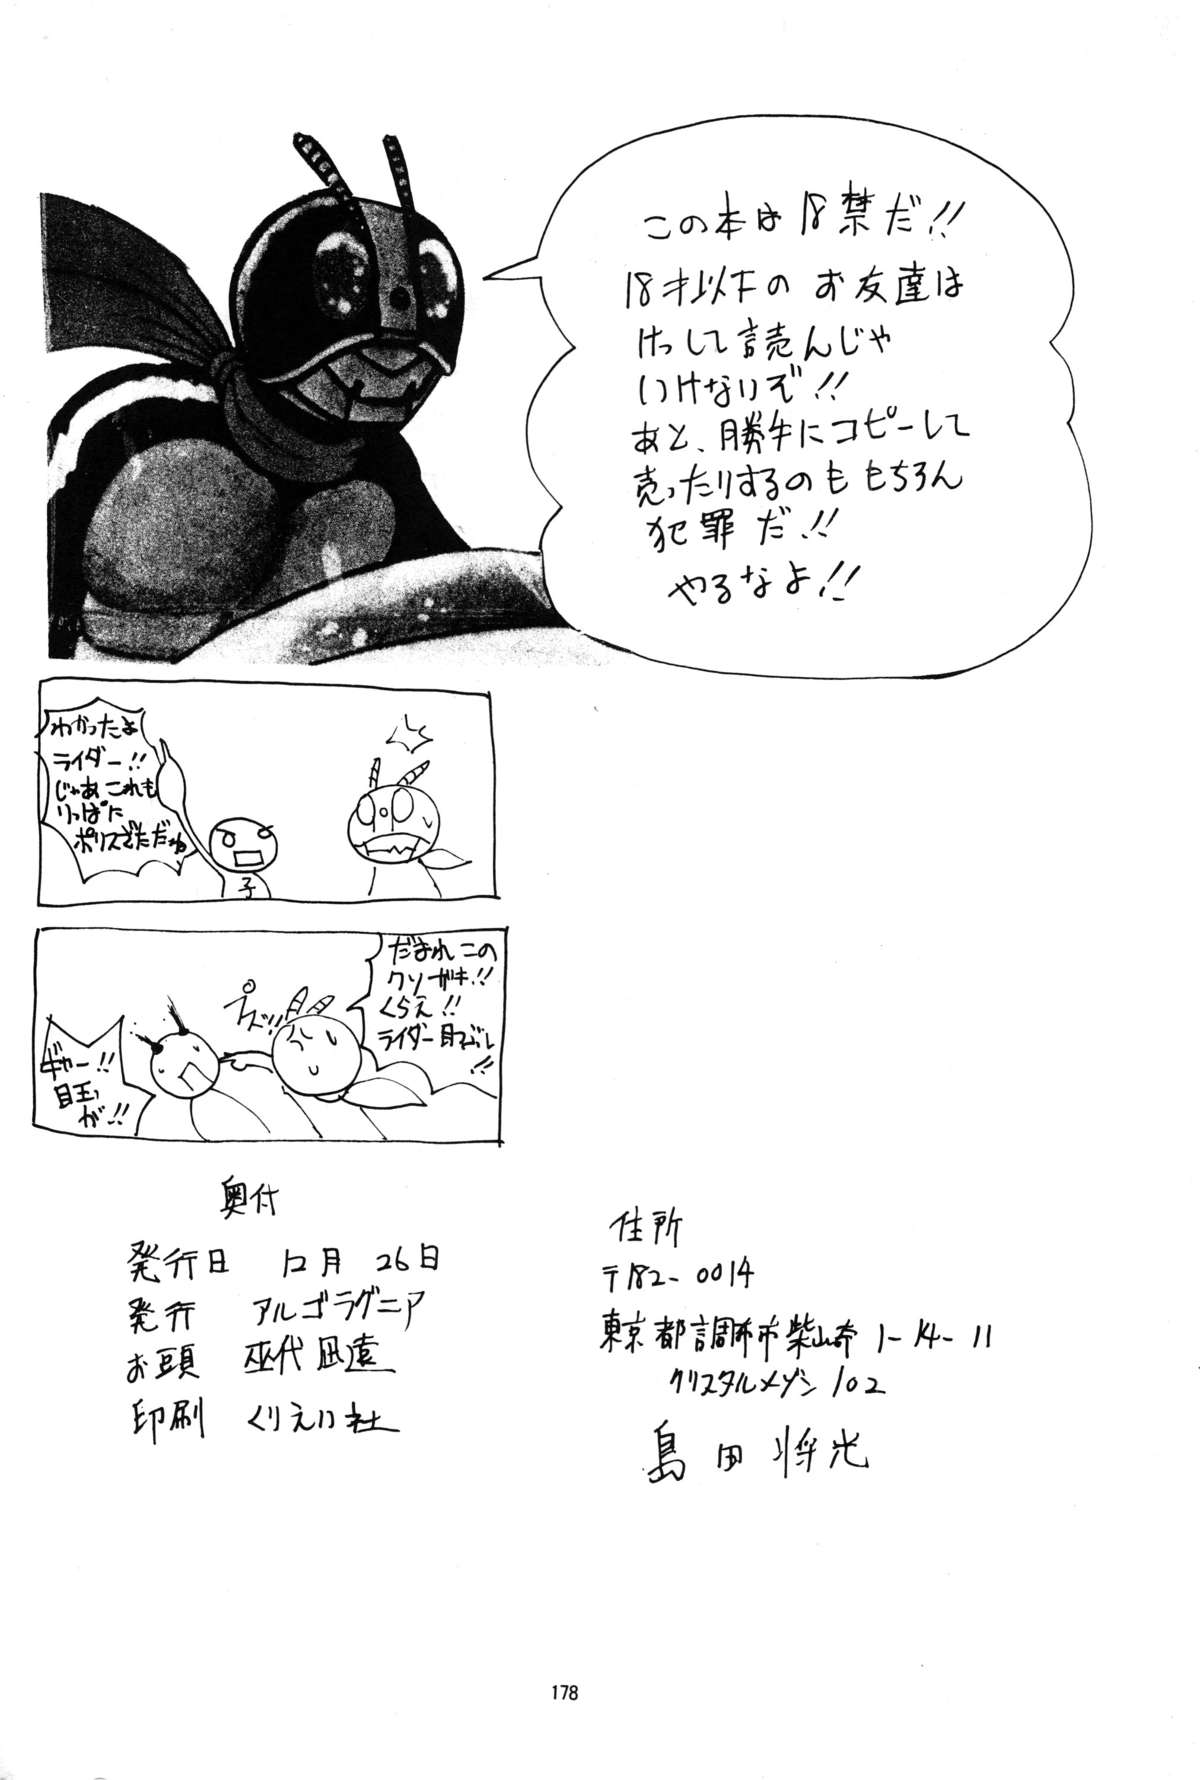 この本は18禁だ!!
18才以下のお友達は
けっして読んじゃ
いけないぞ!!
あと、勝手にコピーして
売ったりするのももちろん
犯罪だ!!
やるなよ!!
わかったよ
ライダー!!
じゃあこれも
りっぱに
ポリスざただね
子
だまれこの
クソガキ!!
くらえ!!
ライダー目つぶし!!
プズ!!
ギャー!!
目玉っ
が!!
奥付
発行日 12月26日
発行 アルゴラグニア
お頭 巫代凪遠
印刷 くりえい社
住所
〒182-0014
東京都調布市柴崎1-14-11
クリスタルメゾン102
島田将光
178